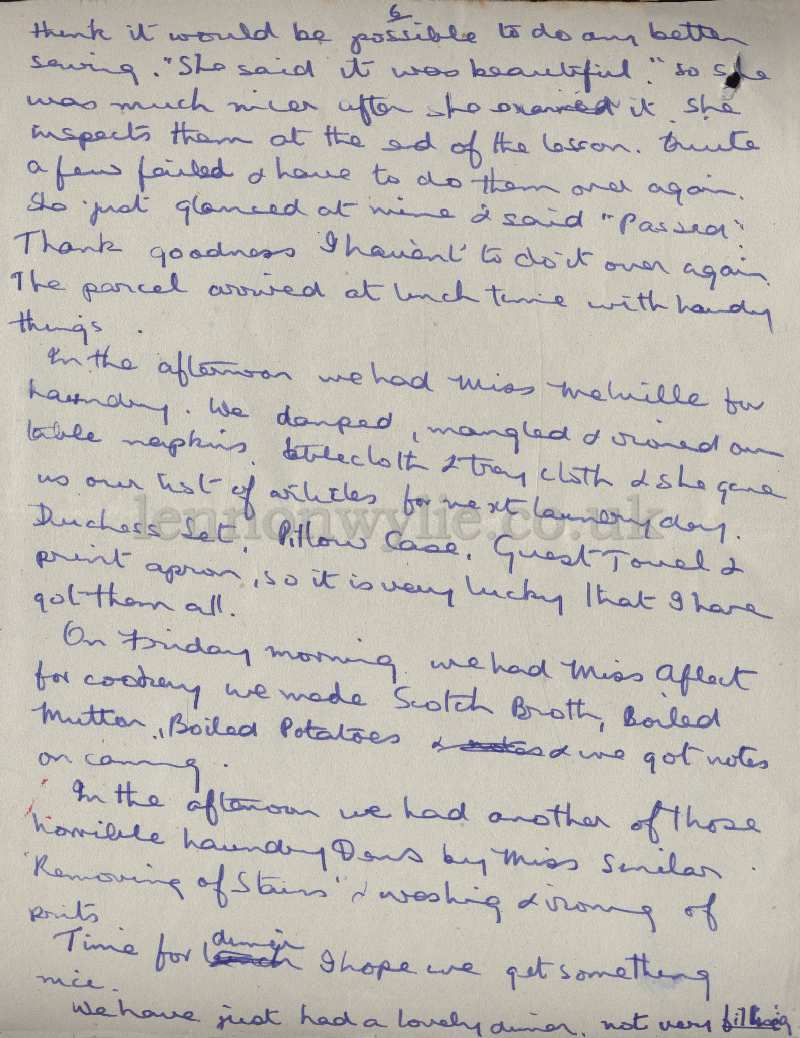 6
think it would be possible to do any better
sewing. "She said it was beautiful." so she
was much nicer after she examined it. She
inspects them at the end of the lesson. Quite
a few failed & have to do them over again.
She just glanced at mine & said "Passed".
Thank goodness I haven't to do it over again.
The parcel arrived at lunch time with handy
things.
In the afternoon we had Miss Melville for
laundry. We damped, mangled & ironed our
table napkins, tablecloth & tray cloth & she gave
us our list of articles for next laundry day.
lennonwylie.co.uk
Duchess Set, Pillow Case, Guest Towel &
print apron, so it is very lucky that I have
got them all.
On Friday morning we had Miss Aflect
for cookery we made Scotch Broth, Boiled
Mutton, Boiled Potatoes & notes & we got notes
on carving.
In the afternoon we had another of those
horrible laundry Dems by Miss
"Removing of Stains" & washing & ironing of
prints
Time for lunch dinner I hope we get something
nice.
We have just had a lovely dinner, not very filling